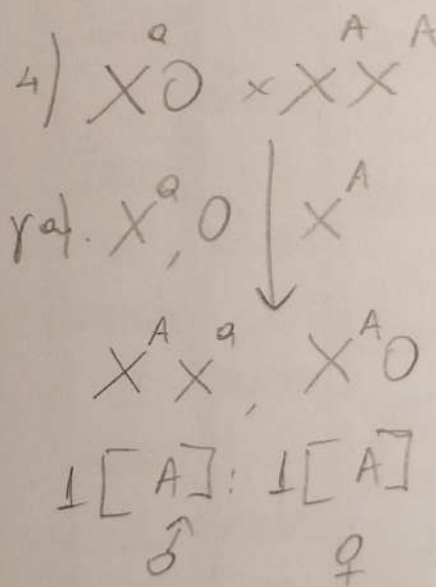 4) XᵃO × XᴬXᴬ
γαμ. Xᵃ, O Xᴬ
XᴬXᵃ, XᴬO
1[A] : 1[A]
♂ ♀